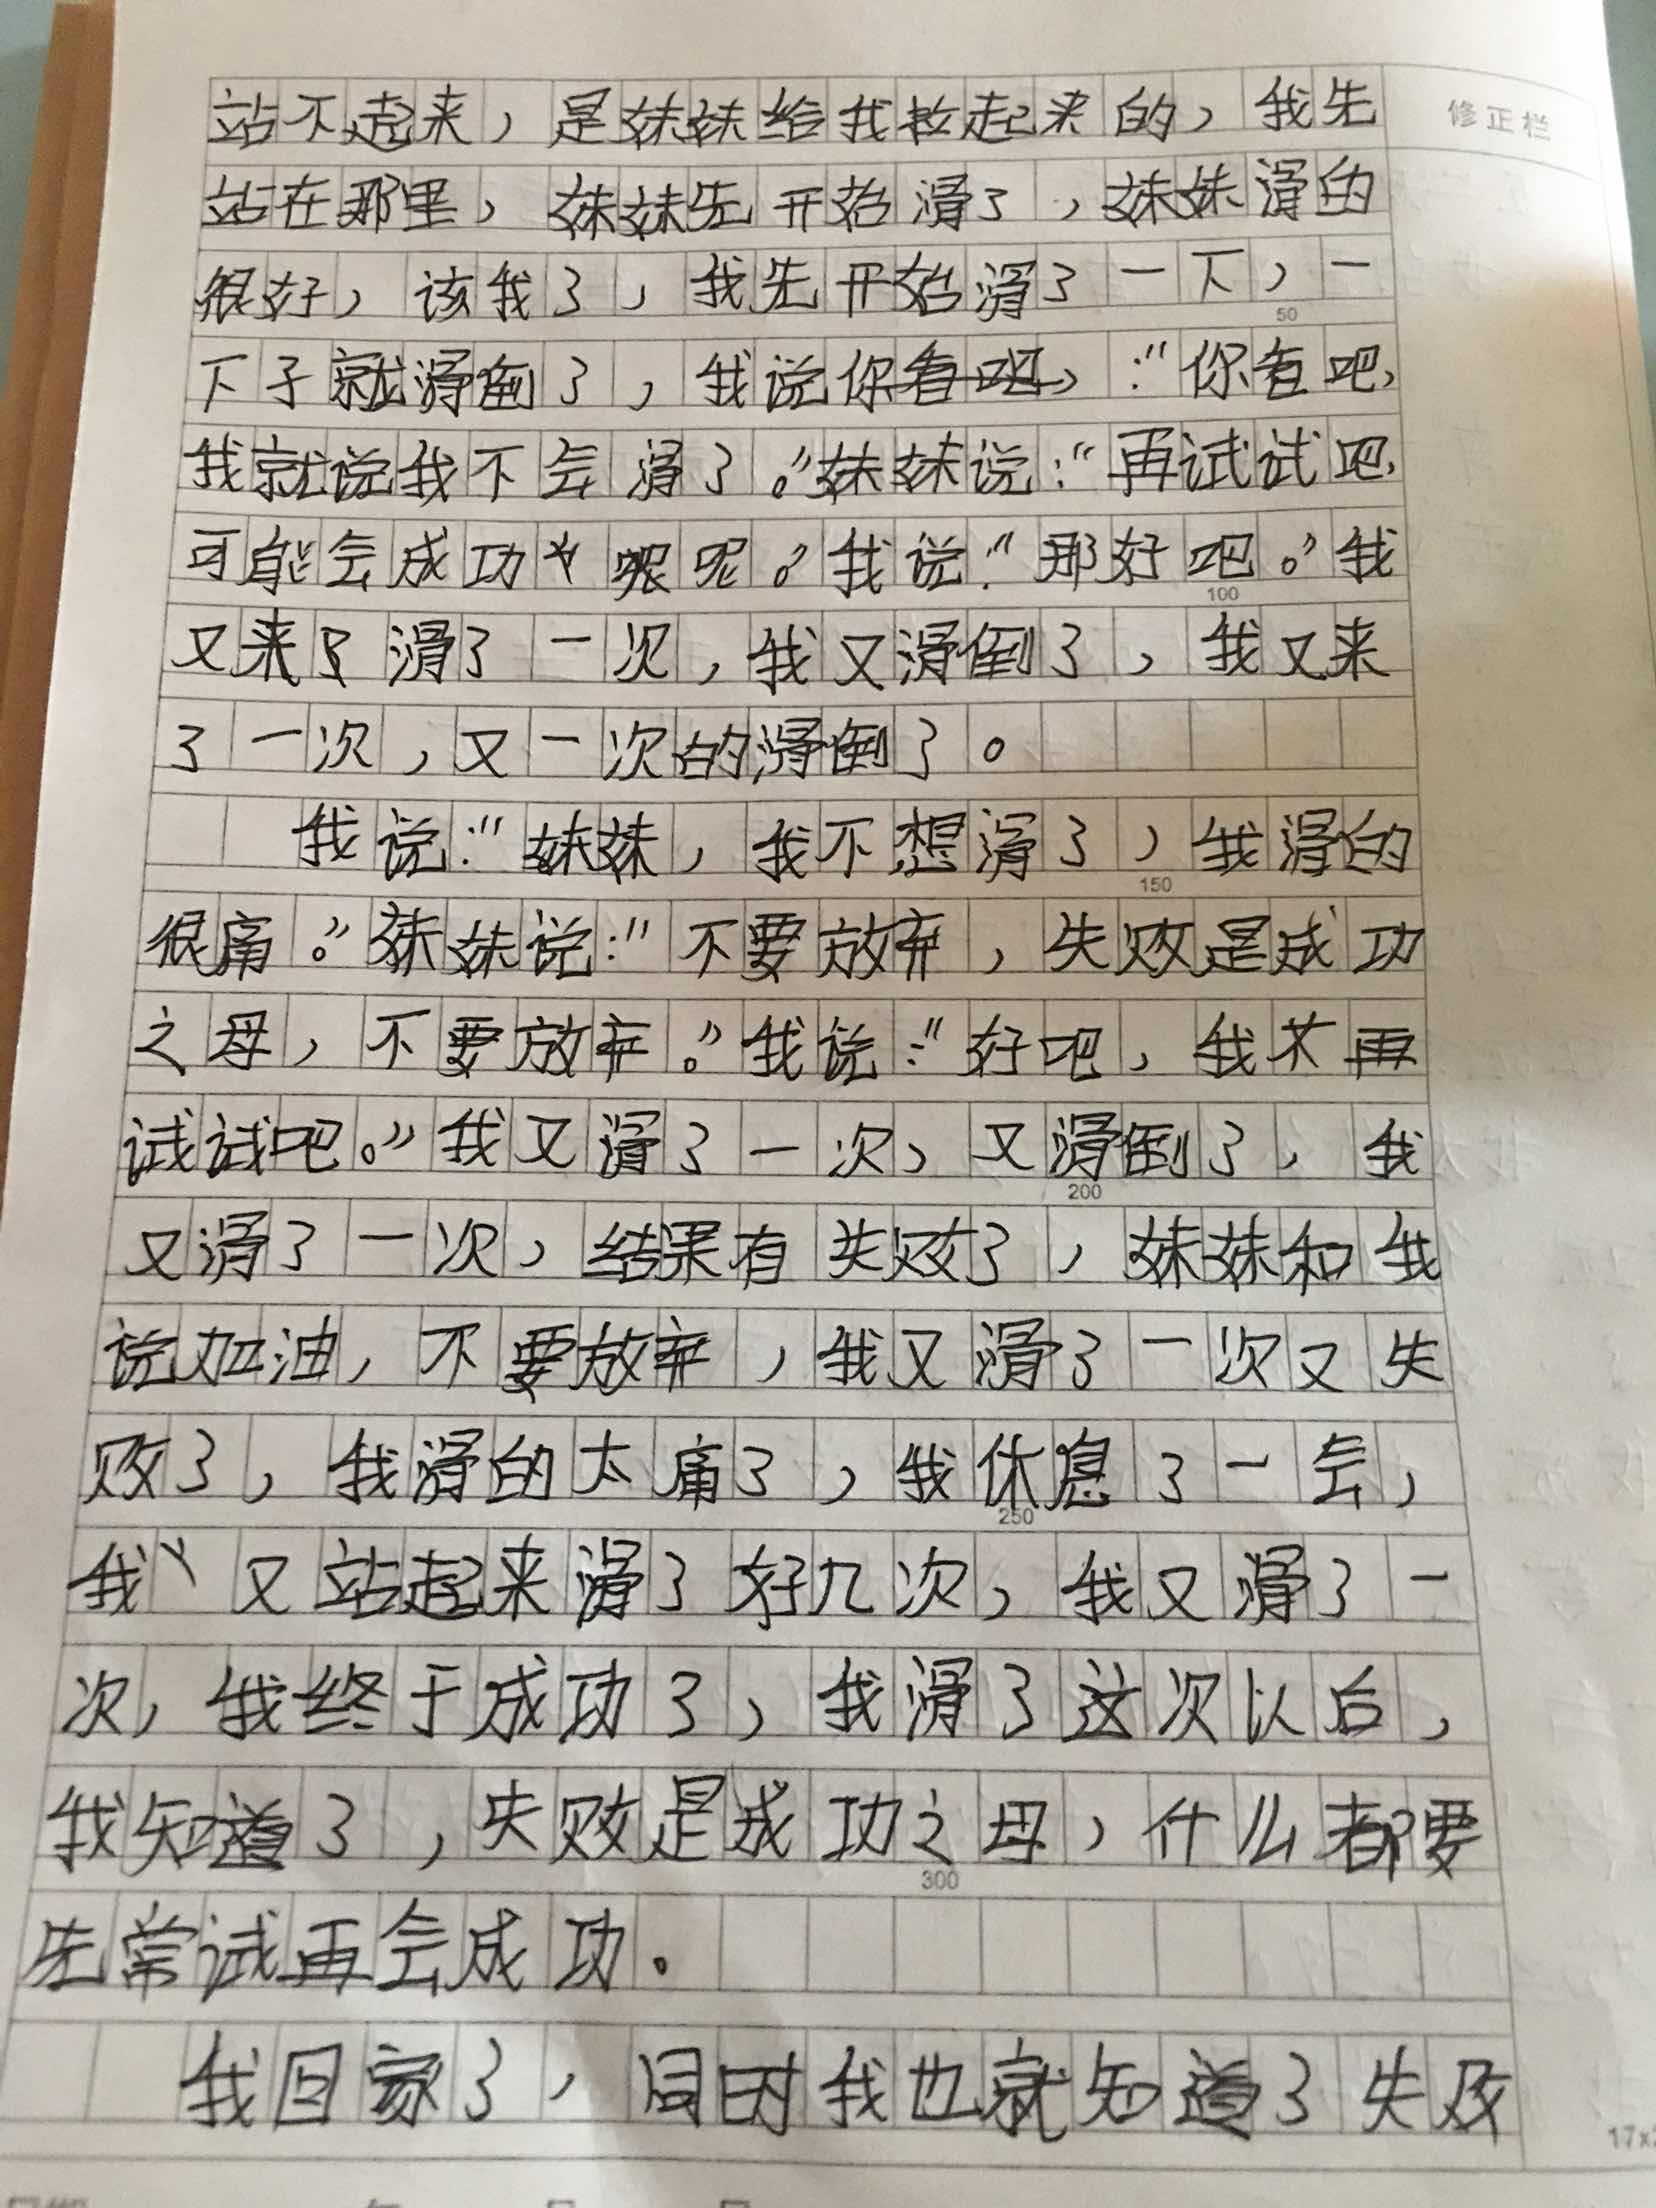 站不起来，是妹妹给我拉起来的，我先
修正栏
站在那里，妹妹先开始滑了，妹妹滑的
很好，该我了，我先开始滑了一下，一
50
下子就滑倒了，我说你看吧，：“你看吧，
我就说我不会滑了。”妹妹说：“再试试吧，
可能会成功呢呢。”我说：“那好吧。”我
100
又来了滑了一次，我又滑倒了，我又来
了一次，又一次的滑倒了。
我说：“妹妹，我不想滑了，我滑的
150
很痛。”妹妹说：“不要放弃，失败是成功
之母，不要放弃。”我说：“好吧，我不再
试试吧。”我又滑了一次，又滑倒了，我
200
又滑了一次，结果有失败了，妹妹和我
说加油，不要放弃，我又滑了一次又失
败了，我滑的太痛了，我休息了一会，
250
我又站起来滑了好几次，我又滑了一
次，我终于成功了，我滑了这次以后，
我知道了，失败是成功之母，什么都要
300
先常试再会成功。
我回家了，同时我也就知道了失败